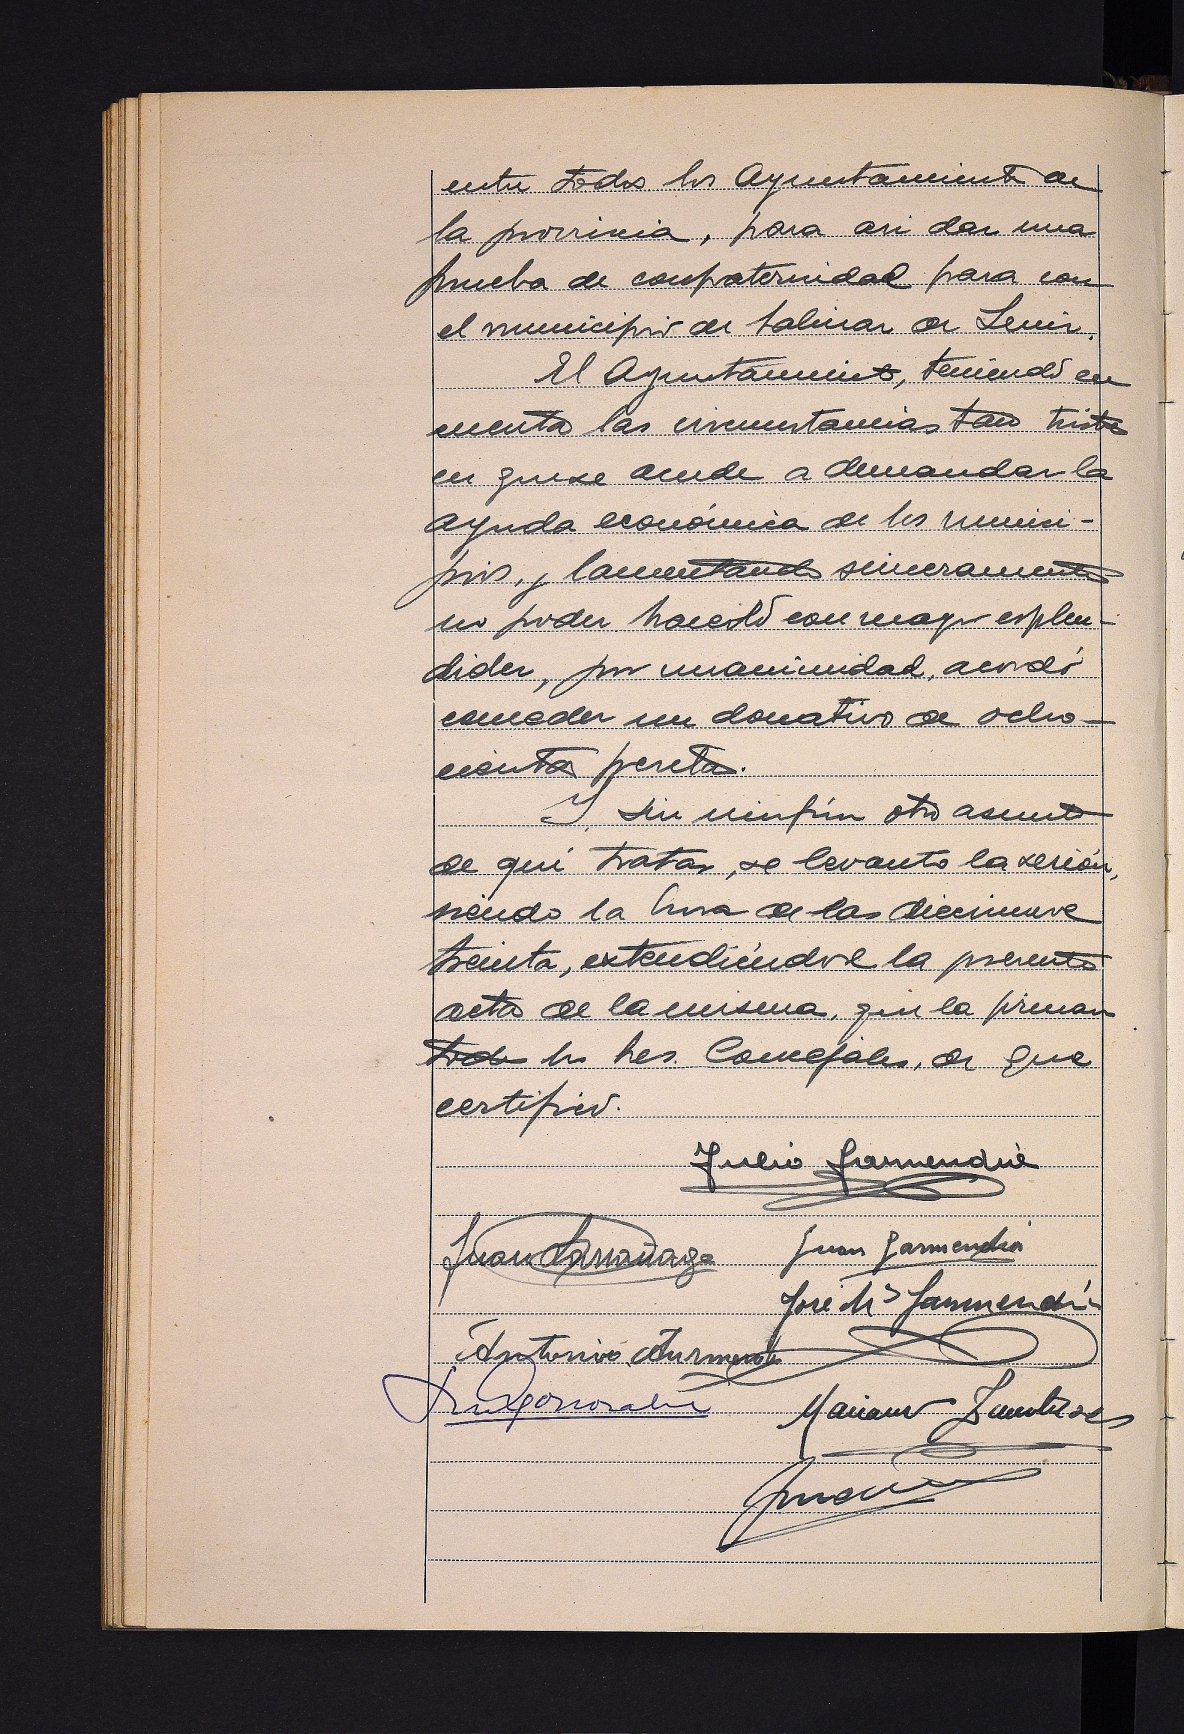 entre todos los Ayuntamientos de
la provincia, para así dar una
prueba de confraternidad para con
el municipio de Salinas de Leniz.
El Ayuntamiento, teniendo en
cuenta las circunstancias tan tristes
en que se acude a demandar la
ayuda económica de los munici-
pios, y lamentando sinceramente
no poder hacerlo con mayor esplen-
didez, por unanimidad, acordó
conceder un donativo de ocho-
cientas pesetas.
Y, sin ningún otro asunto
de qué tratar, se levanto la sesión,
siendo la hora de las diecinueve
treinta, extendiéndose la presente
acta de la misma, que la firman
todos los Sres. Concejales, de que
certifico.
Julio Garmendia
Juan Larrañaga Juan Garmendia
José Mª Garmendia
Antonio
Mariano